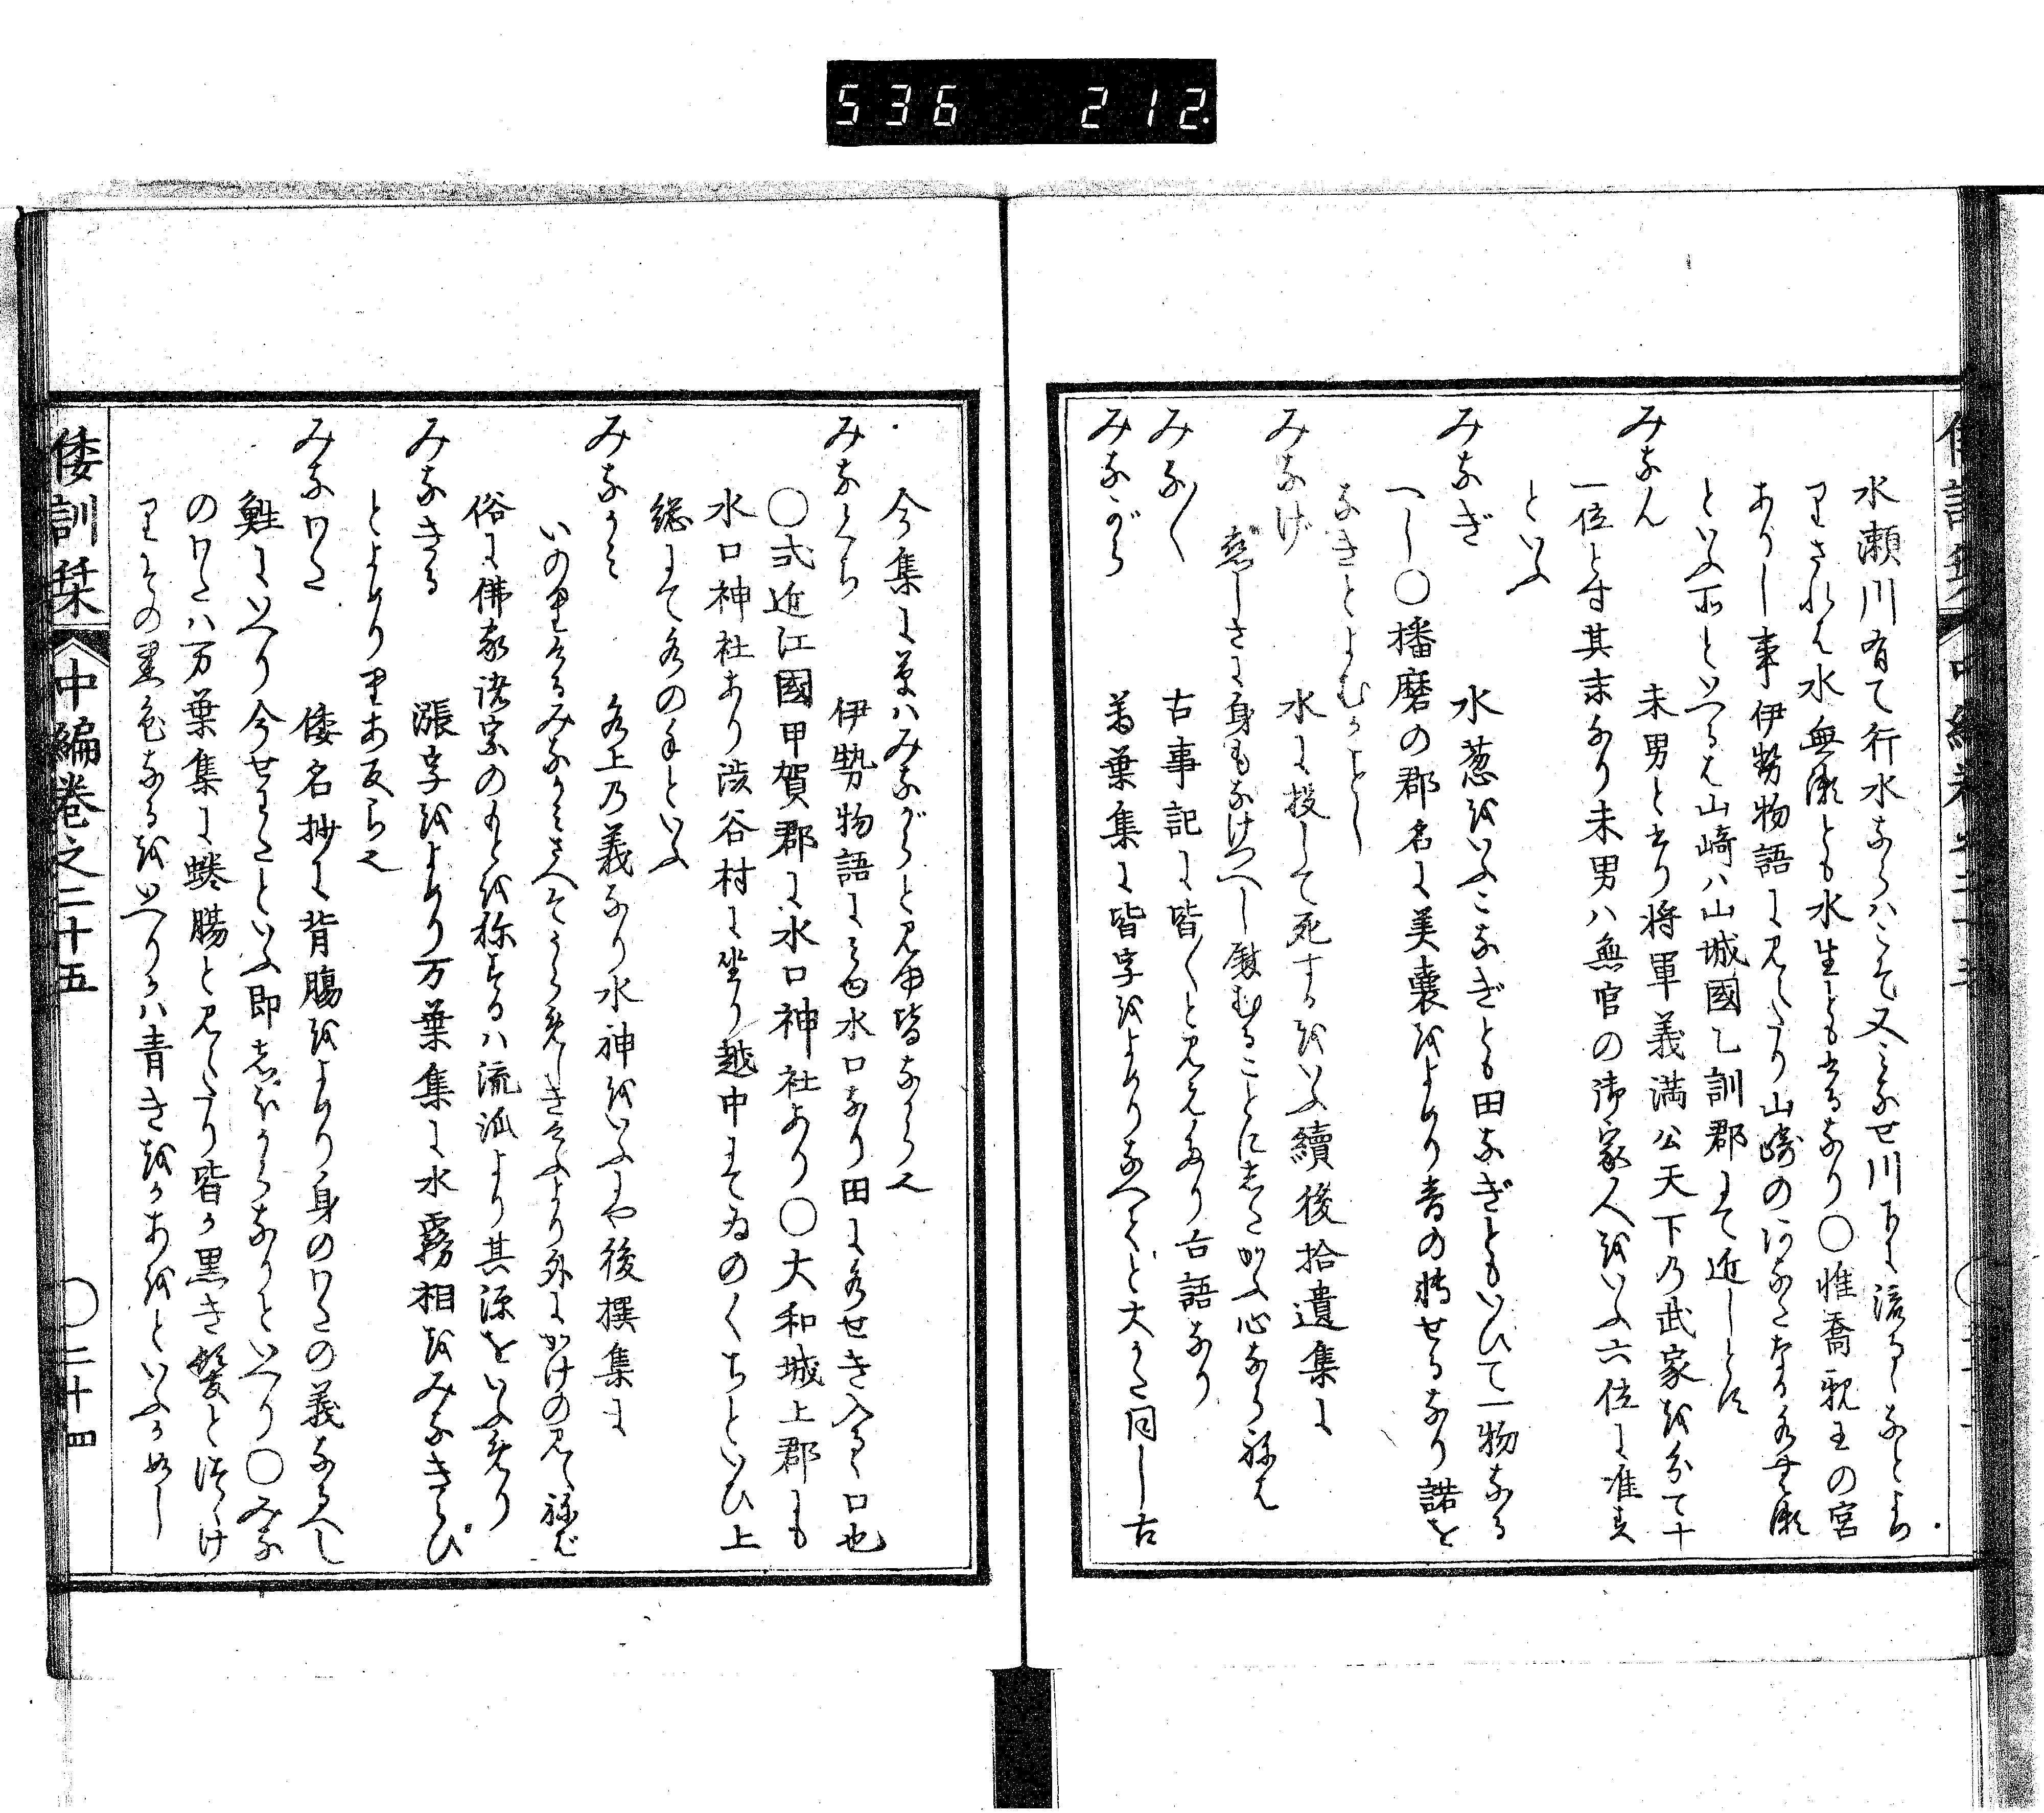 536 212.
水瀬川有て行水ならハこそ又みなせ川下に流るゝなとよめ
りされは水無瀬とも水生とも書るなり〇惟喬親王の宮
ありし事伊勢物語に見えたり山崎のあなたなる水無瀬
といふ所といへるは山崎ハ山城國乙訓郡にて近しとそ
みなん 未男と書り将軍義満公天下の武家を分て十
一位とす其末なり未男ハ無官の御家人をいふ六位に准す
といふ
みなぎ 水葱をいふこなぎとも田なぎともいひて一物なる
へし〇播磨の郡名に美嚢をよめり音の轉せるなり諾を
なきとよむかことし
みなげ 水に投して死するをいふ續後拾遺集に
悲しさに身もなけつへし慰むることにしたかふ心ならねは
みな〱 古事記に皆〱と見えたり古語なり
みながら 萬葉集に皆字をよめりなへてと大かた同し古
今集に草ハみながらと見ゆ皆なから也
みなくち 伊勢物語にみゆ水口なり田に水せき入るゝ口也
〇式近江國甲賀郡に水口神社あり〇大和城上郡にも
水口神社あり渋谷村に坐り越中にてゐのくちといひ上
総にて水の手といふ
みなかみ 水上乃義なり水神をいふにや後撰集に
いのりけるみなかみさへそうらめしきけふより外にかけの見えねば
俗に佛家諸宗のもとを称するハ流派より其源をいふ成り
みなきる 漲字をよめり万葉集に水霧相をみなきらひ
とよめりりあ反ら也
みなわた 倭名抄に背腸をよめり身のわたの義なるへし
鮏にいへり今せわたといふ即しほからなりといへり〇みな
のわたハ万葉集に蜷腸と見えたり皆か黒き髪とつゝけ
りその黒色なるをいへりかハ青きをかあをといふか如し
倭訓栞 中編巻之二十五 〇二十四